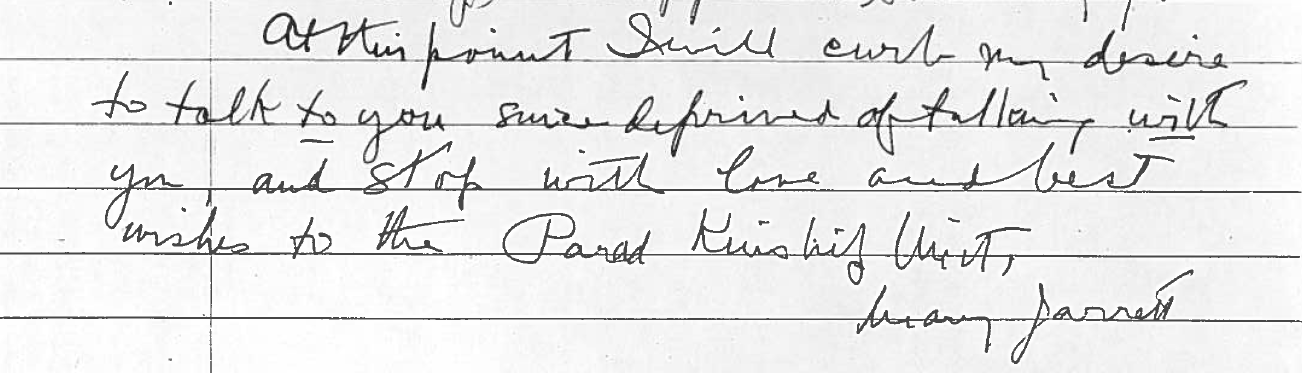 At this point I will curb my desire
to talk to you since deprived of talking with
you, and stop with love and best
wishes to the Parad Kinship Unit,
Mary Jarrett